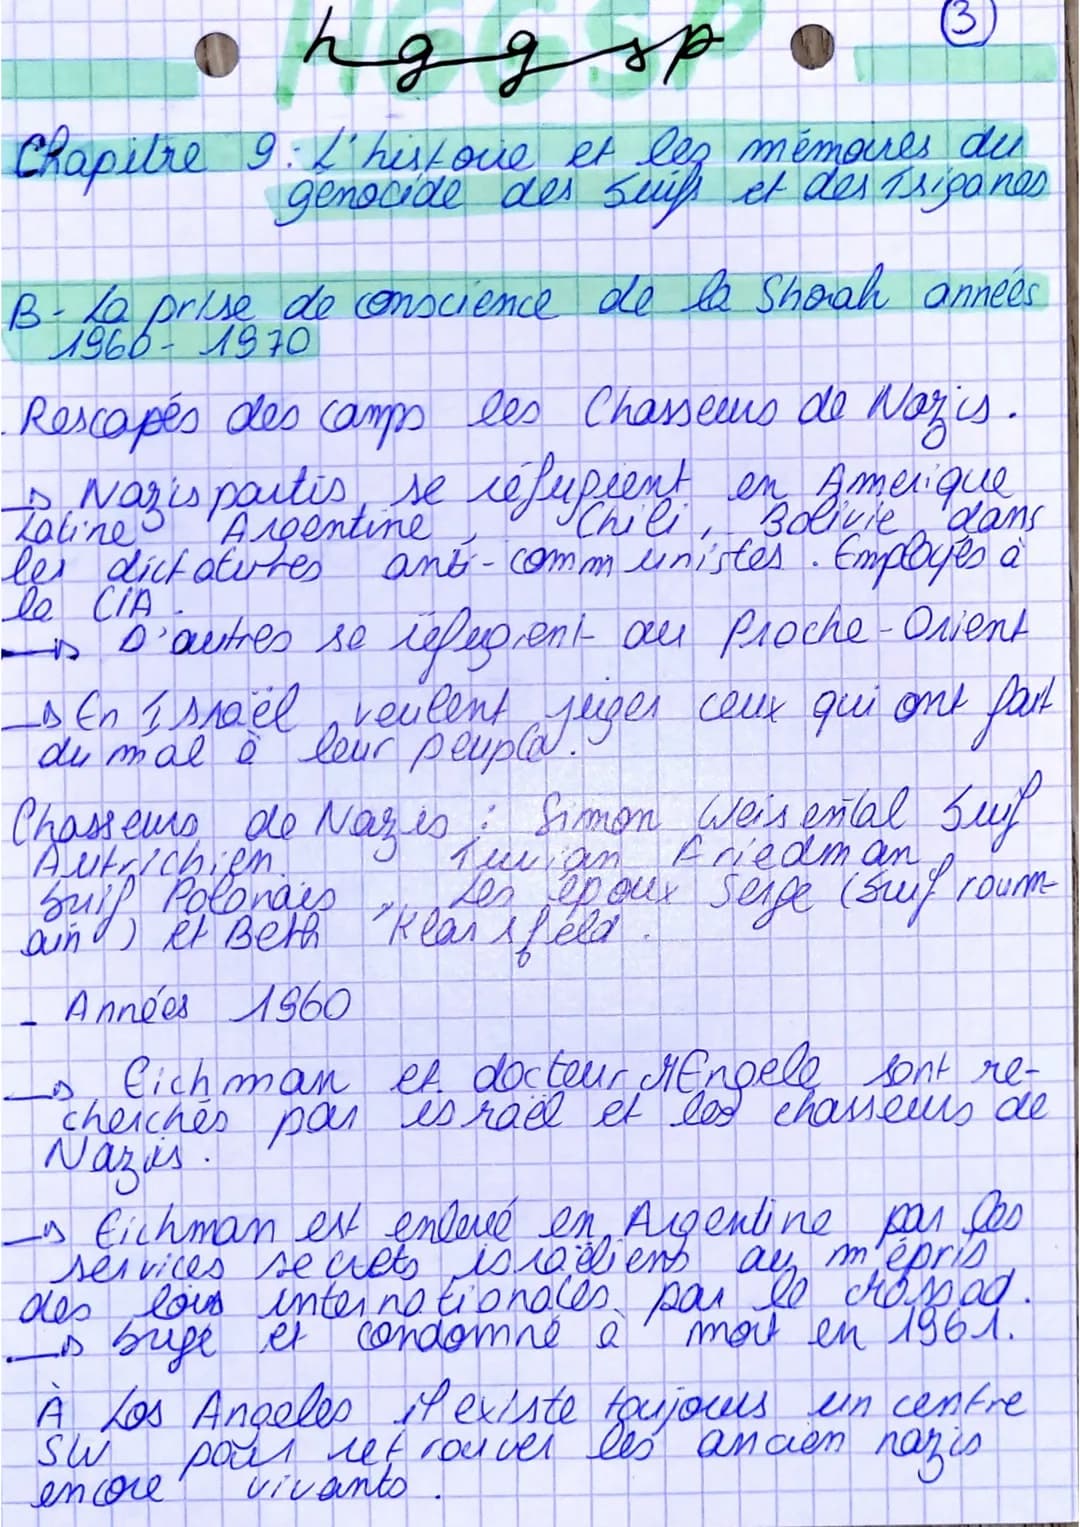 HGGSP
hggsp
3
Chapitre 9 : L'histoire et les mémoires du
génocide des Juifs et des Tsiganes
B - La prise de conscience de la Shoah années
1960 - 1970
Rescapés des camps les Chasseurs de Nazis.
→ Nazis partis se réfugient en Amérique
Latine Argentine, Chili, Bolivie dans
les dictatures anti-communistes. Employés à
la CIA.
→ D'autres se réfugient au Proche-Orient
→ En Israël veulent juger ceux qui ont fait
du mal à leur peuple.
Chasseurs de Nazis : Simon Weisental Juif
Autrichien. Tuvian Friedman
Juif Polonais, Les époux Serge (Juif roum-
ain) et Beth Klarsfeld.
- Années 1960
→ Eichman et docteur MEngele sont re-
cherchés par israël et les chasseurs de
Nazis.
→ Eichman est enlevé en Argentine par les
services secrets israëliens au mépris
des lois internationales par le Mossad.
→ Jugé et condamné à mort en 1961.
À Los Angeles il existe toujours un centre
SW pour retrouver les ancien nazis
encore vivants.